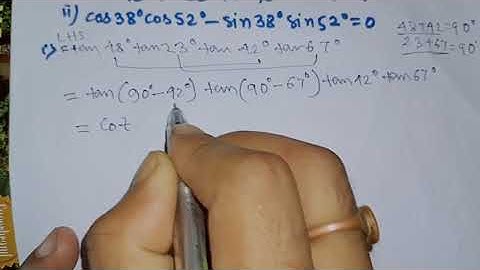 ii) cos38° cos52° - sin38° sin52° = 0
48+42=90°
23+67=90°
LHS
i) = tan 48° tan 23° tan 42° tan 67°
= tan (90° - 42°) tan (90° - 67°) tan 42° tan 67°
= cot